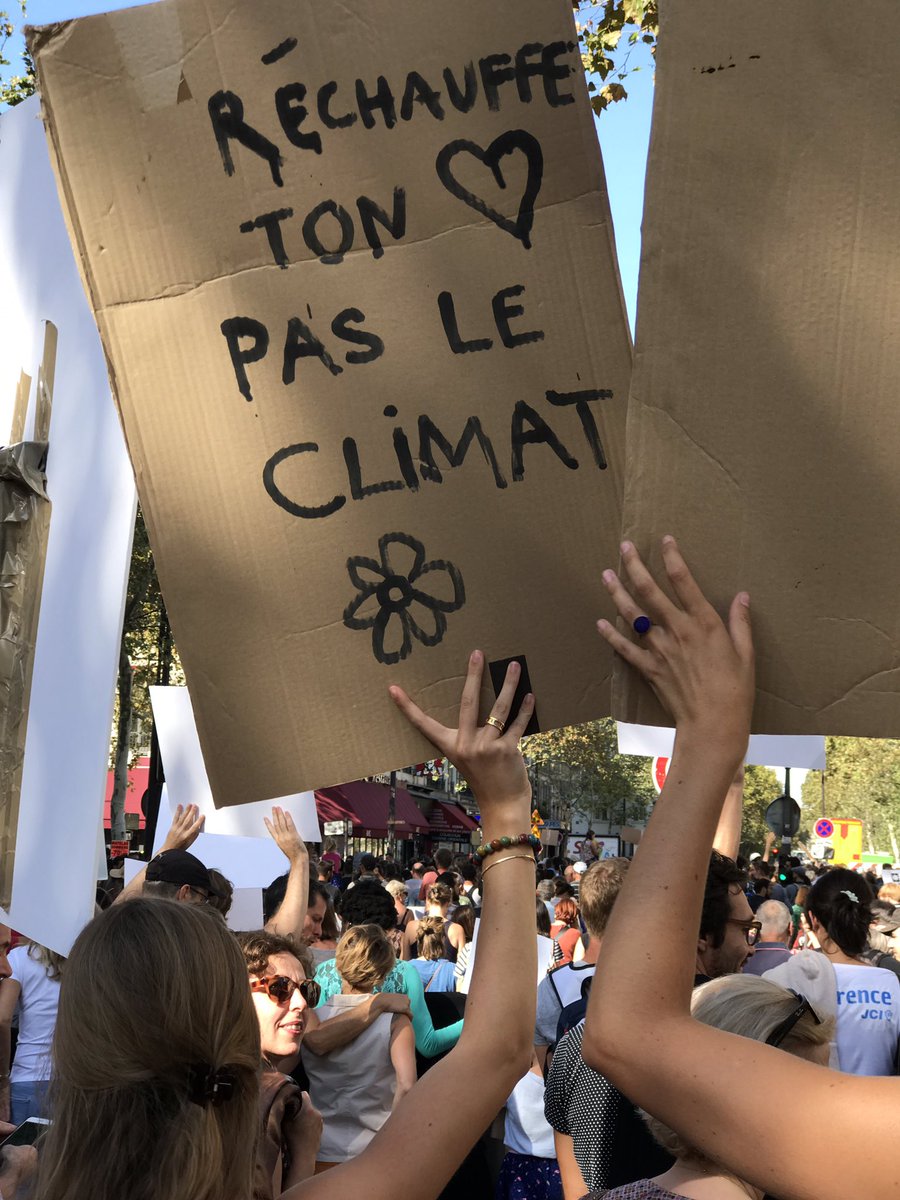 RÉCHAUFFE
TON ♡
PAS LE
CLiMAT
rence
JCI